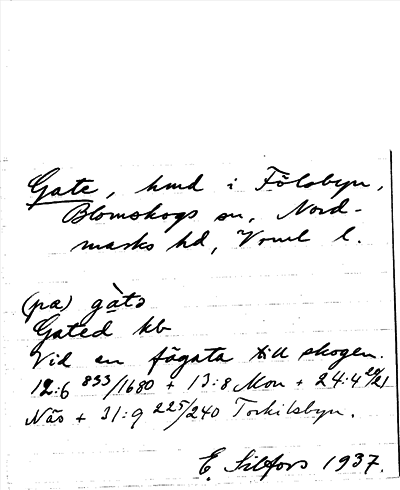 Gate, hmd i Fölsbyn,
Blomskogs sn, Nord-
marks hd, Vrml l.
(pæ) gàtə
Gated kb
Vid en fägata till skogen.
12:6 833/1680 + 13:8 Mon + 24:4 20/21
Näs + 31:9 225/240 Torkilsbyn.
E. Silfors 1937.